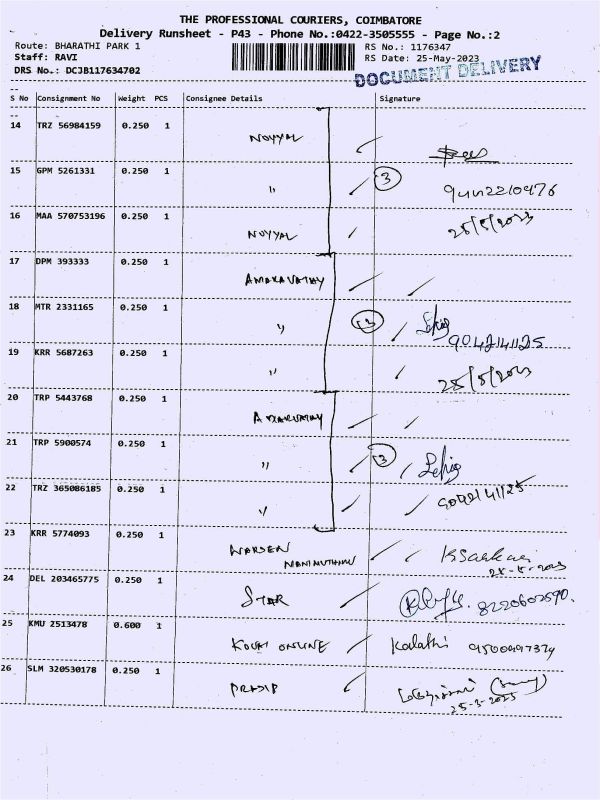 THE PROFESSIONAL COURIERS, COIMBATORE
Delivery Runsheet - P43 - Phone No.:0422-3505555 - Page No.:2
Route: BHARATHI PARK 1 RS No.: 1176347
Staff: RAVI RS Date: 25-May-2023
DRS No.: DCJB117634702 DOCUMENT DELIVERY
S No Consignment No Weight PCS Consignee Details Signature
14 TRZ 56984159 0.250 1 NOYYAL
15 GPM 5261331 0.250 1 " 3
16 MAA 570753196 0.250 1 NOYYAL 25/5/2023
17 DPM 393333 0.250 1
18 MTR 2331165 0.250 1 " 3 9042141125
19 KRR 5687263 0.250 1 " 25/5/2023
20 TRP 5443768 0.250 1
21 TRP 5900574 0.250 1 " 3
22 TRZ 365086185 0.250 1 " 9042141125
23 KRR 5774093 0.250 1
24 DEL 203465775 0.250 1 STAR
25 KMU 2513478 0.600 1 ONLINE Kalathi
26 SLM 320530178 0.250 1 PRADIP